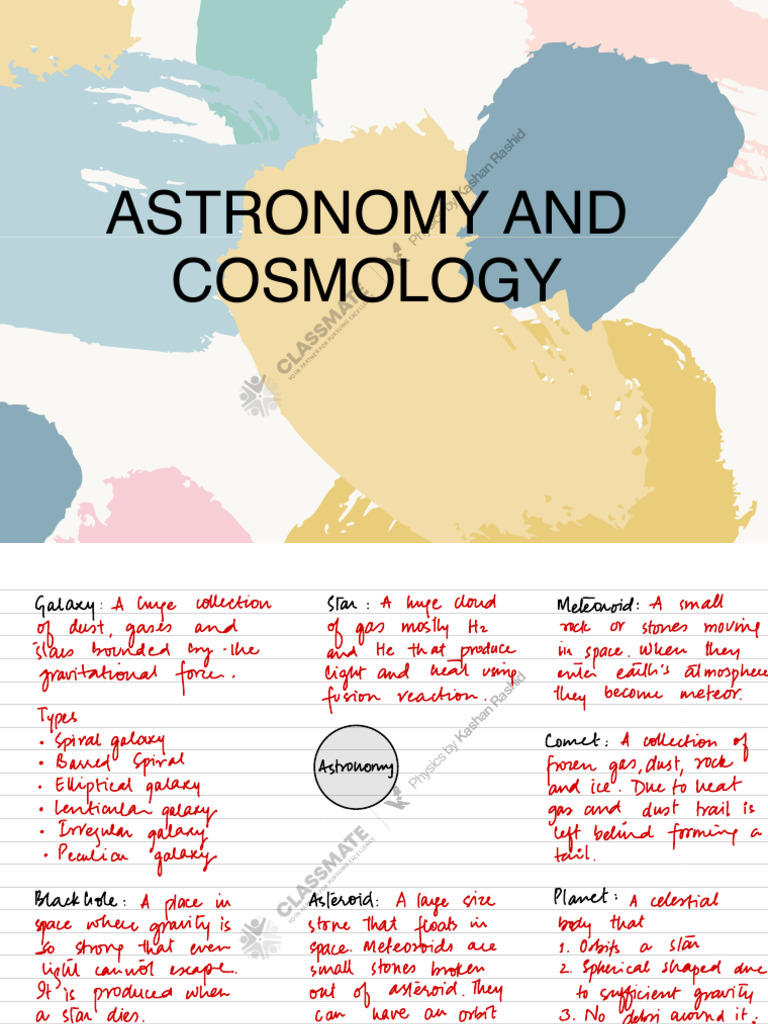 ASTRONOMY AND
COSMOLOGY
Physics by Kashan Rashid
CLASSMATE
YOUR PARTNER FOR PURSUING EXCELLENCE
Galaxy: A huge collection
of dust, gases and
stars bounded by the
gravitational force.
Types
• Spiral galaxy
• Barred Spiral
• Elliptical galaxy
• Lenticular galaxy
• Irregular galaxy
• Peculiar galaxy
Star: A huge cloud
of gas mostly H2
and He that produce
light and heat using
fusion reaction.
Meteoroid: A small
rock or stones moving
in space. When they
enter earth's atmosphere
they become meteor.
Astronomy
Physics by Kashan Rashid
CLASSMATE
YOUR PARTNER FOR PURSUING EXCELLENCE
Comet: A collection of
frozen gas, dust, rock
and ice. Due to heat
gas and dust trail is
left behind forming a
tail.
Black hole: A place in
space where gravity is
so strong that even
light cannot escape.
It is produced when
a star dies.
Asteroid: A large size
stone that floats in
space. Meteoroids are
small stones broken
out of asteroid. They
can have an orbit
Planet: A celestial
body that
1. Orbits a star
2. Spherical shaped due
to sufficient gravity
3. No debri around it.